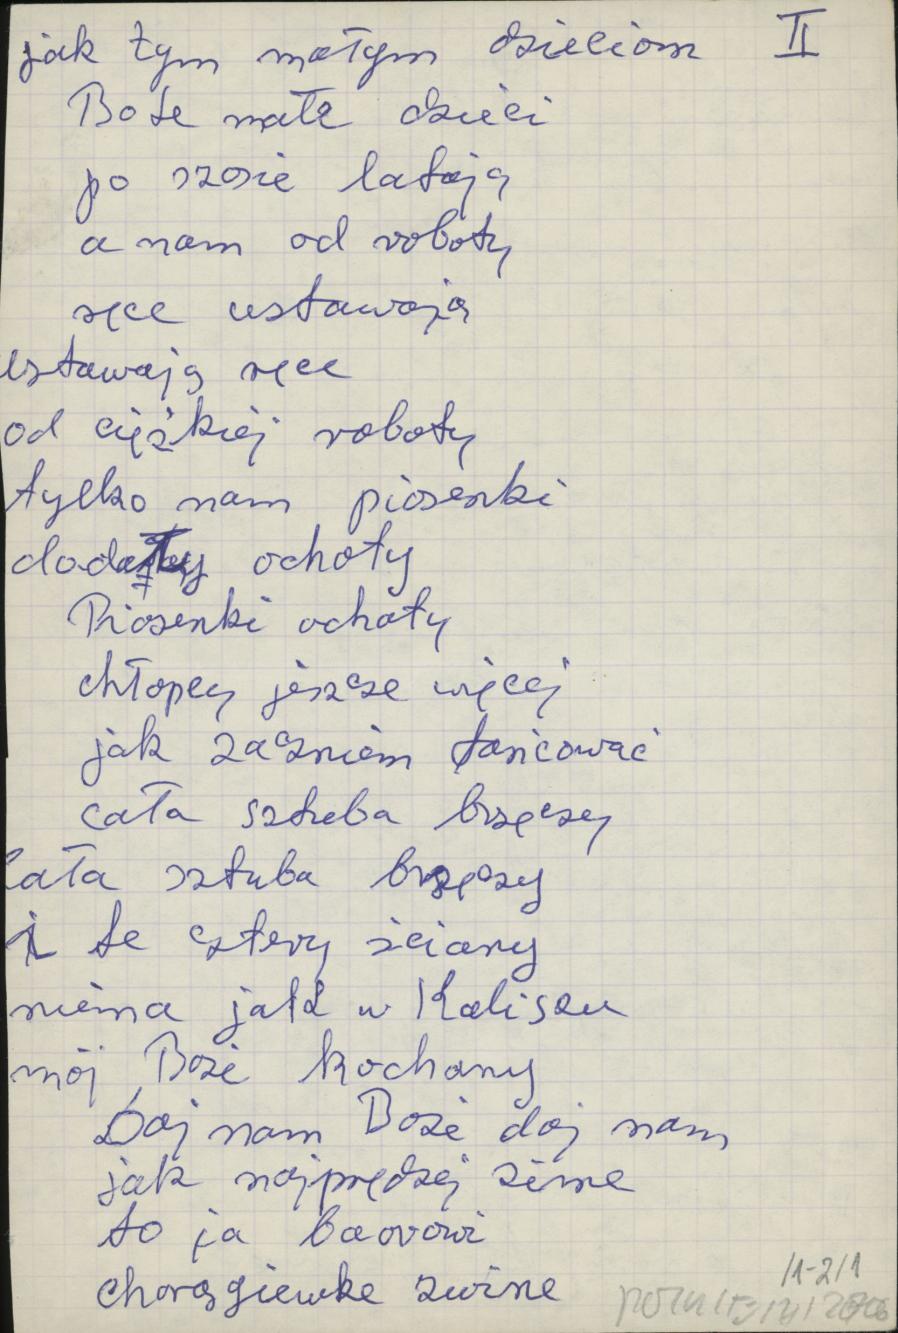 jak tym małym dzieciom II
Boże małe dzieci
po szosie latają
a nam od roboty
ręce ustawają
ustawają ręce
od ciężkiej roboty
tylko nam piosenki
ochoty
Piosenki ochoty
chłopcy jeszcze więcej
jak zaczniem tańcować
cała sztuba brzęczy
Cała sztuba brzęczy
i te cztery ściany
niema jak w Kaliszu
mój Boże kochany
Daj nam Boże daj nam
jak najprędzej zime
to ja baorowi
chorągiewke zwine
/1-2/1